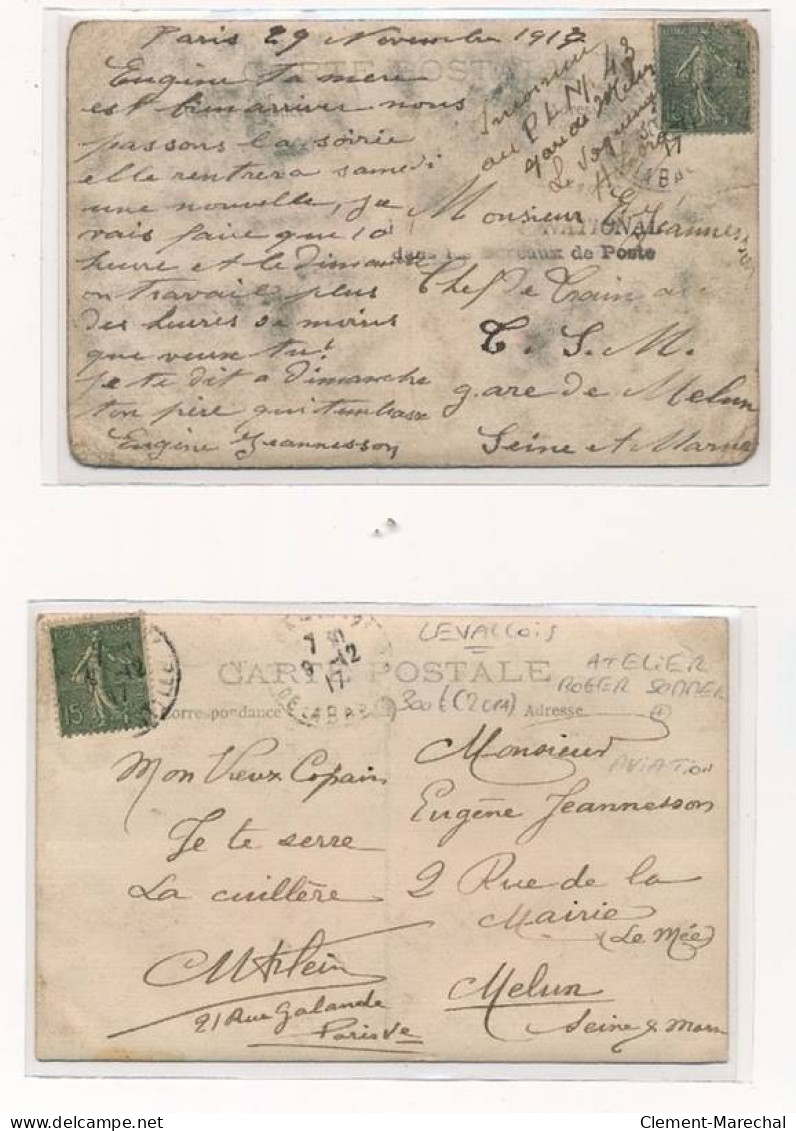 Paris 29 Novembre 1917
CARTE POSTALE
Eugène ta mere
est bien arriver nous
passons la soirie
elle rentrera samedi
une nouvelle, je
vais faire que 10
heure et le dimanche
on travail plus
des heures de moins
que veux tu!
je te dit a Dimanche
ton père qui t'embrasse
Eugène Jeannesson
Inconnu
au P.L.N. 43
gare de Melun
Le
17
NATIONAL
dans les bureaux de Poste
Monsieur E. Jeannesson
Chef de Train au
C. S. M.
gare de Melun
Seine et Marne
15
7
9 12
17
DE LABA
CARTE POSTALE
Correspondance
Adresse
LEVALLOIS
ATELIER
ROGER SOMMER
300€ (2 CPA)
AVIATION
Mon Vieux Copain
Je te serre
La cuillère
21 Rue Galande
Paris Ve
Monsieur
Eugène Jeannesson
2 Rue de la
Mairie
(Le Mée)
Melun
Seine & Marn
Clement-Marechal